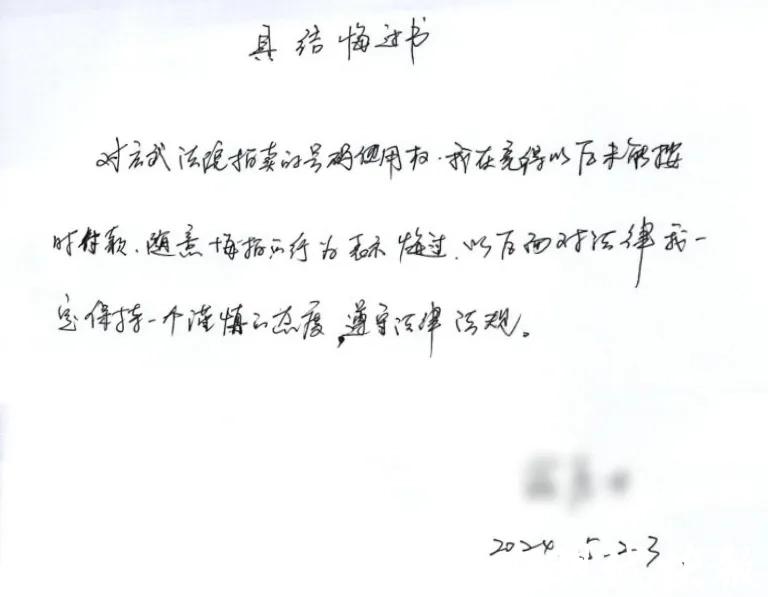 具结悔过书
对玄武法院拍卖的号码使用权，我在竞得以后未能按
时付款、随意悔拍的行为表示悔过，以后面对法律我一
定保持一个谨慎的态度，遵守法律法规。
2024.5.23.
报